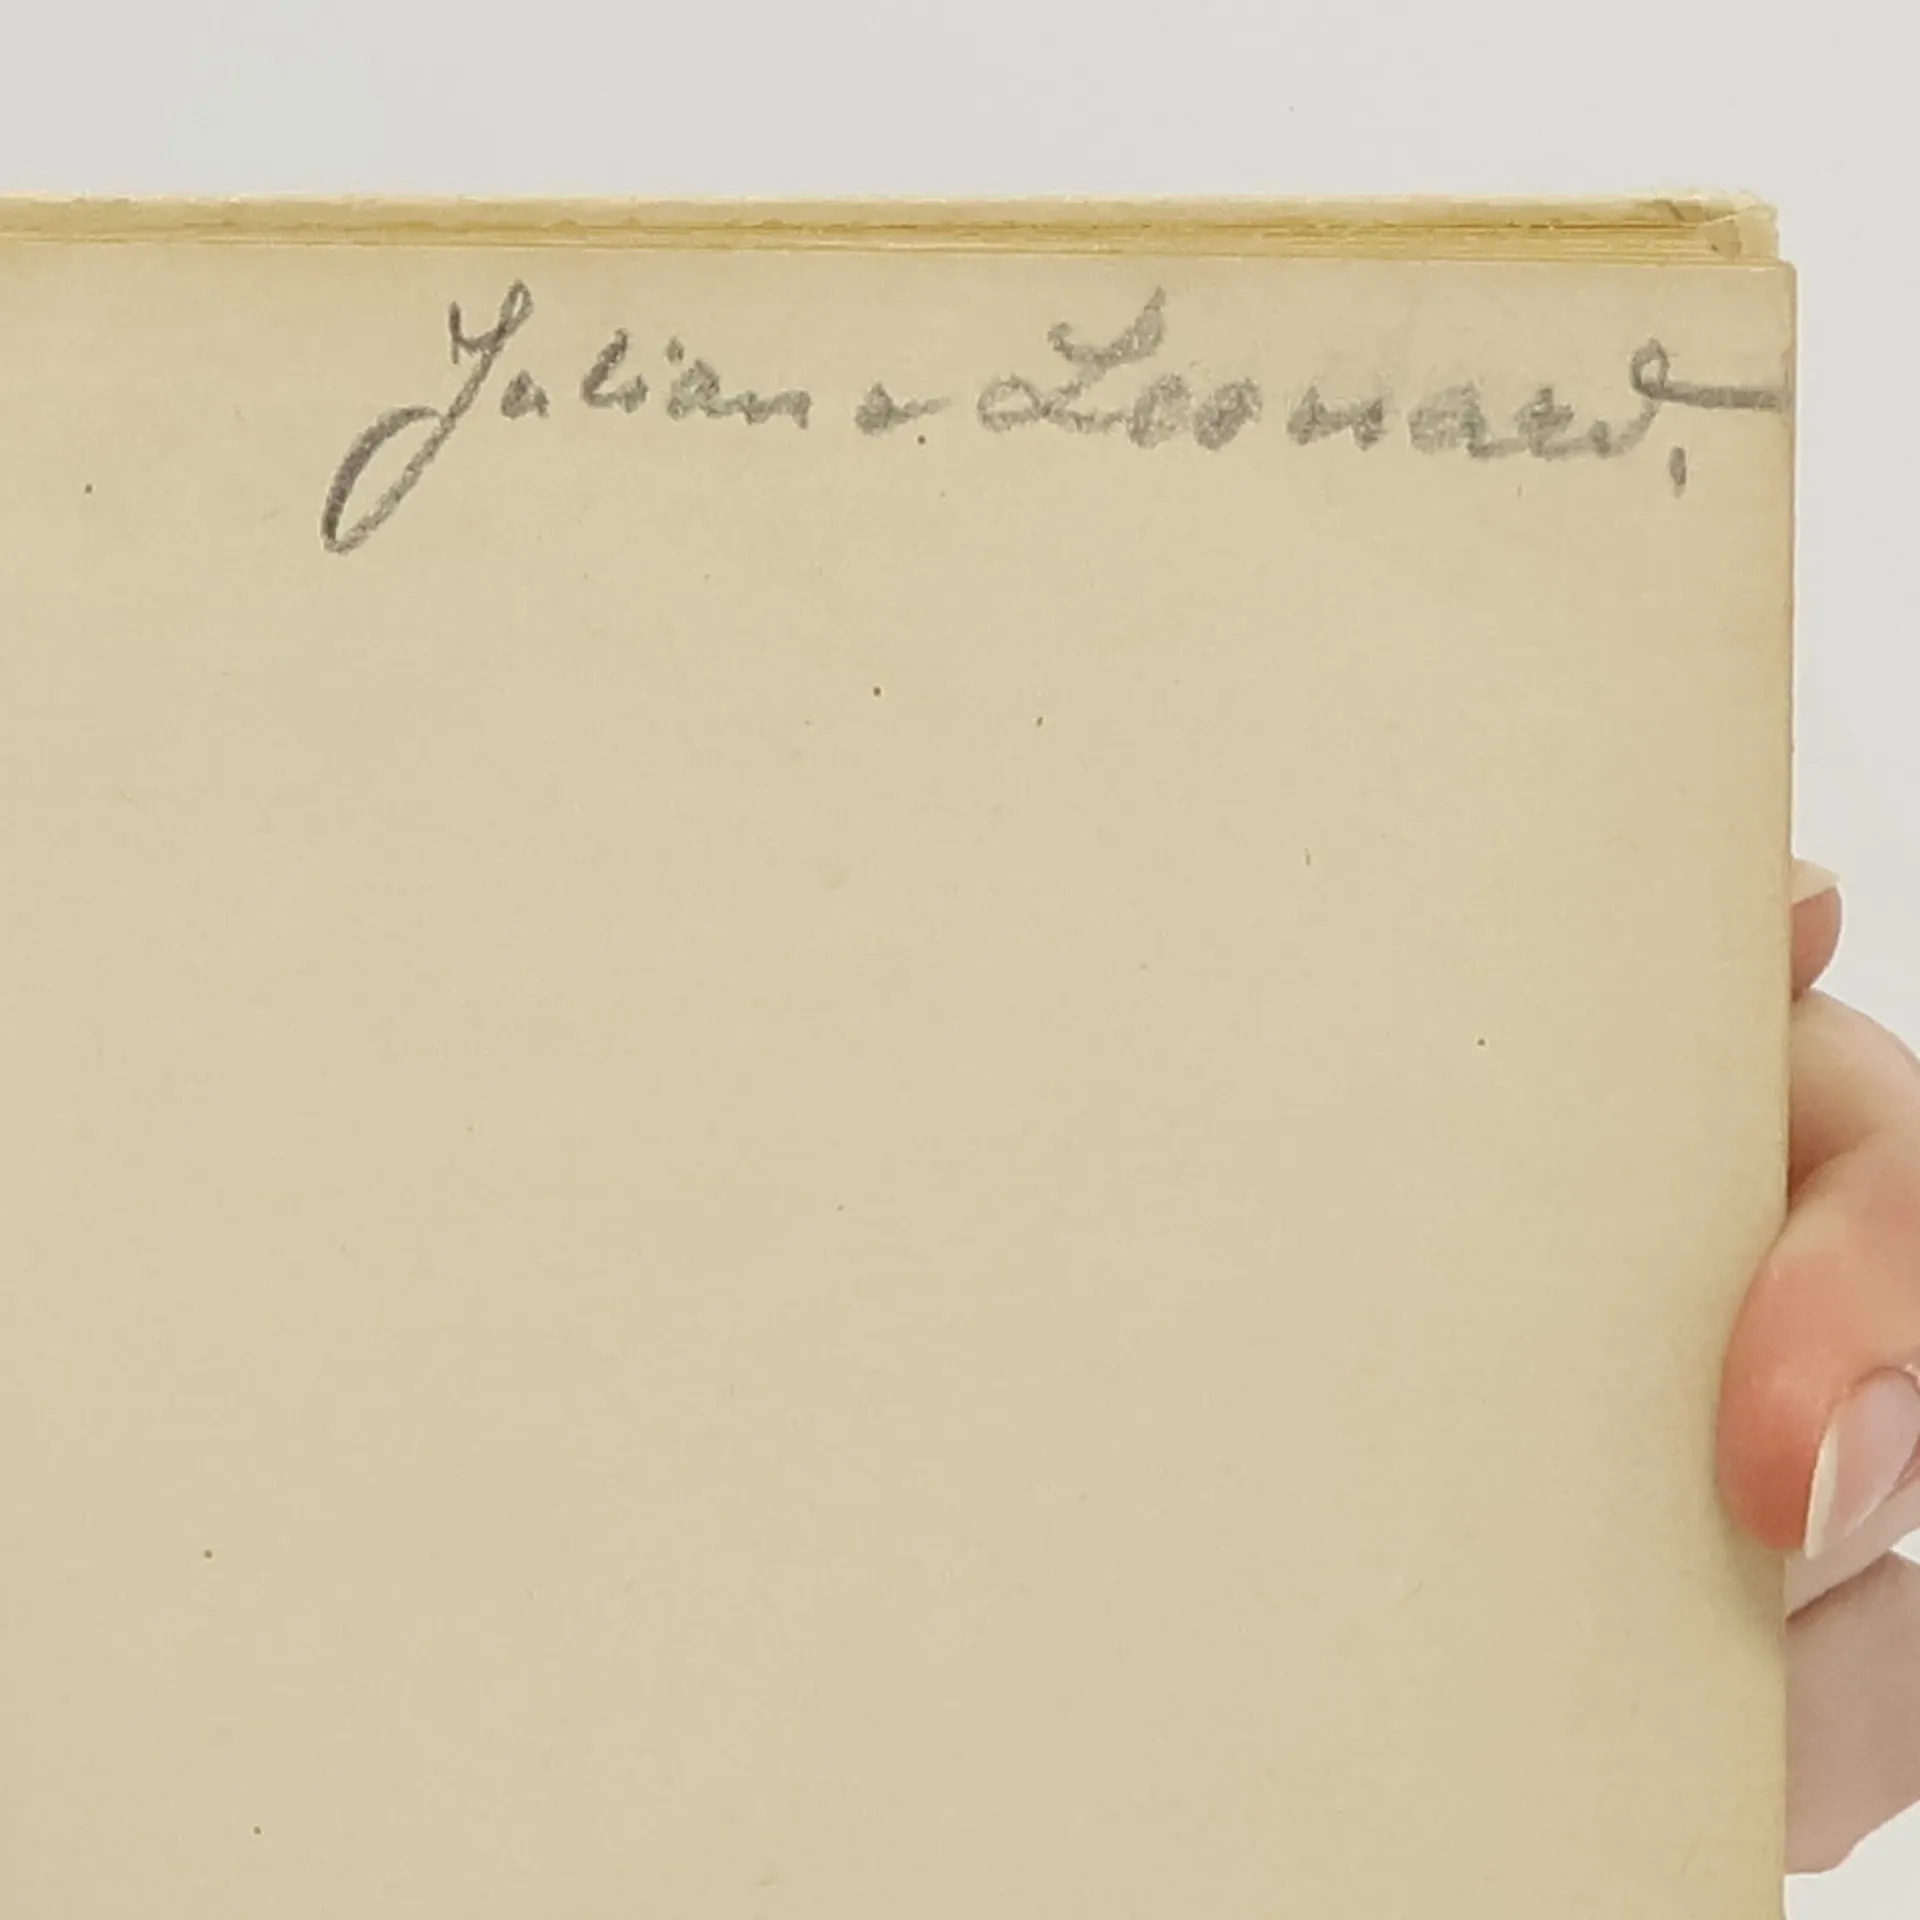 Julian & Leonard,